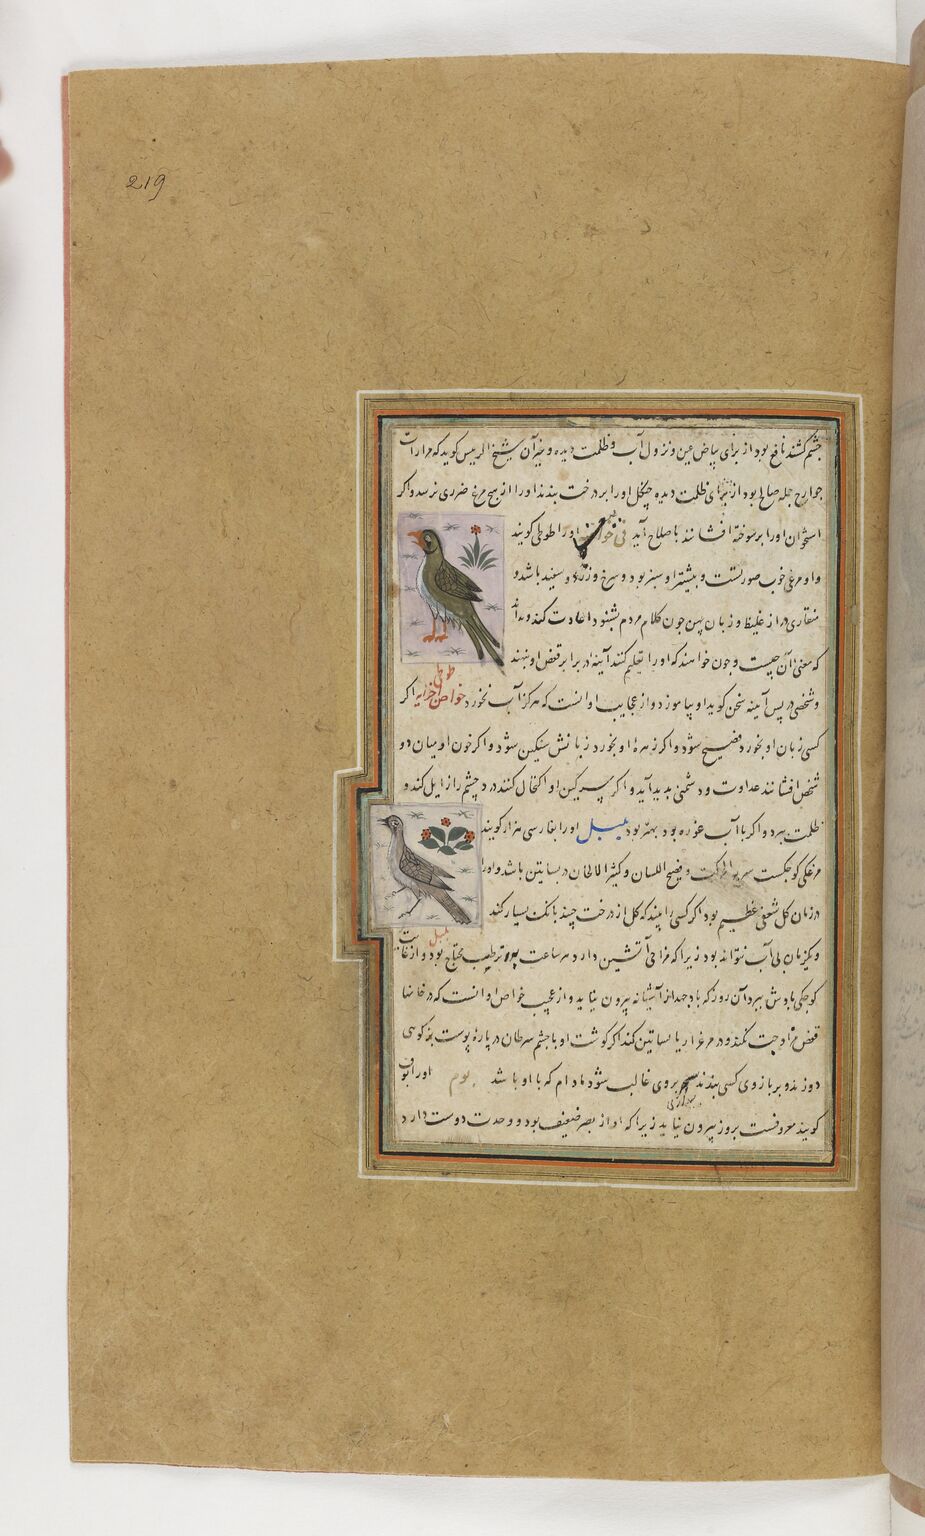 219
چشم کشند نافع بود از برای بیاض عین و نزول آب و ظلمت دیده و شیخ الرییس کوید که مرارات
جوارح جمله صالح بود از برای ظلمت دیده چنکل او را بر درخت بندند او را از هیچ مرغ ضرری نرسد و اکر
استخوان او را بر سوخته افشانند باصلاح آید او را طوطی کویند
و او مرغی خوب صورتست و بیشتر او سبز بود و سرخ و زرد و سفید باشد و
منقاری دراز غلیظ و زبان پهن چون کلام مردم بشنود اعادت کند و نداند
که معنی آن چیست و چون خواهند که او را تعلیم کنند آینه در برابر قفص او نهند
طوطی
و شخصی در پس آینه سخن کوید او بیاموزد و از عجایب او انست که هرکز آب نخورد خواص اجزایه اکر
کسی زبان او بخورد فصیح شود و اکر زهرهٔ او بخورد زبانش سنکین شود و اکر خون او میان دو
شخص افشانند عداوت و دشمنی بدید آید و اکر سرکین او اکتحال کنند درد چشم را زایل کند و
ظلمت ببرد و اکر با آب غوره بود بهتر بود بلبل او را بفارسی هزار کویند
مرغکی کوچکست سریع الحرکت و فصیح اللسان و کثیر الالحان در بساتین باشد و او را
در زمان کل شعفی عظیم بود اکر کسی را بیند که کل از درخت چیند بانک بسیار کند
بلبل
و یکزمان بی آب نتواند بود زیرا که مزاجی آتشین دارد هر ساعت بترطیب محتاج بود و از غایت
کوچکی بادش ببرد آن روز که باد جهد از آشیانه بیرون نیاید و از عجیب خواص او انست که در خانها
قفص مزاوجت نکند و در مرغزار یا بساتین کند اکر کوشت او با چشم سرطان در پارهٔ پوست بز کوهی
دوزند و بر بازوی کسی بندند بر وی غالب شود مادام که با او باشد بوم او را بوف
کویند معروفست بروز بیرون نیاید زیرا که او از بصر ضعیف بود و وحدت دوست دارد